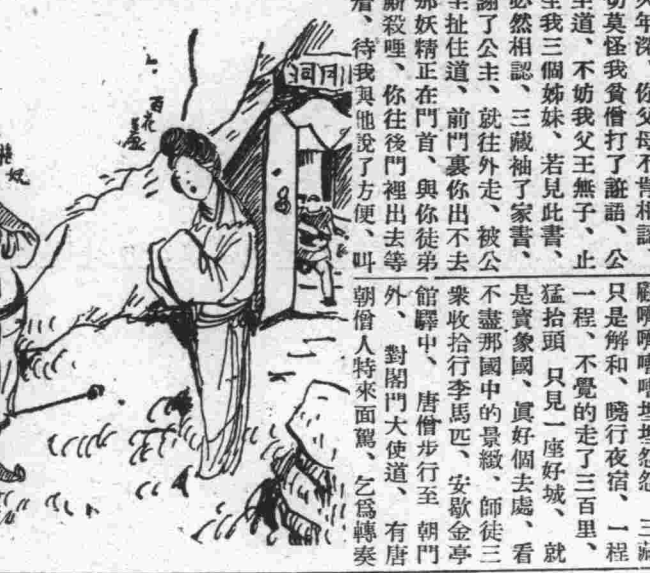 年深、你父母不肯相認、
切莫怪我貧僧打了誑語、公
主道、不妨我父王無子、止
生我三個姊妹、若見此書、
必然相認、三藏袖了家書、
謝了公主、就往外走、被公
主扯住道、前門裏你出不去
那妖精正在門首、與你徒弟
廝殺哩、你往後門裡出去等
着、待我與他說了方便、叫
埋埋怨怨、三藏
只是解和、曉行夜宿、一程
一程、不覺的走了三百里、
猛抬頭 只見一座好城、就
是寶象國、眞好個去處、看
不盡那國中的景緻、師徒三
衆收拾行李馬匹、安歇金亭
館驛中、唐僧步行至 朝門
外、 對閣門大使道、 有唐
朝僧人特來面駕、 乞爲轉奏
月洞
百花羞